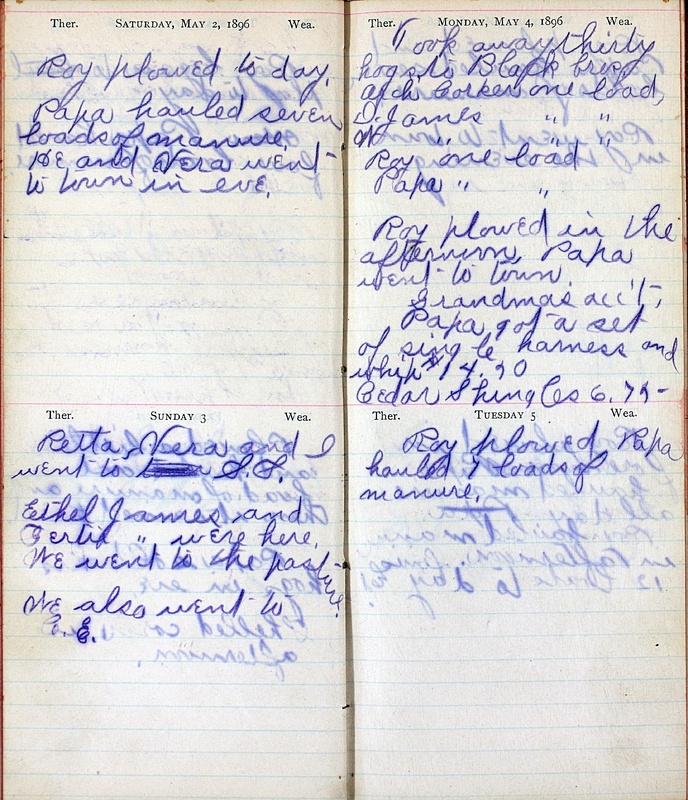 Ther. SATURDAY, MAY 2, 1896 Wea.
Roy plowed to day.
Papa hauled seven
loads of manure.
He and Vera went
to town in eve.
Ther. SUNDAY 3 Wea.
Retta, Vera and I
went to S.S.
Ethel James and
Gertie " were here.
We went to the pasture.
We also went to
C. E.
Ther. MONDAY, MAY 4, 1896 Wea.
Took away thirty
hogs to Black
one load,
D. James " "
W " " "
Roy one load
Papa " "
Roy plowed in the
afternoon, Papa
went to town.
Grandmas acc't,
Papa got a set
of single harness and
whip $14.90
Cedar Shingles 6.75-
Ther. TUESDAY 5 Wea.
Roy plowed Papa
hauled 7 loads of
manure.